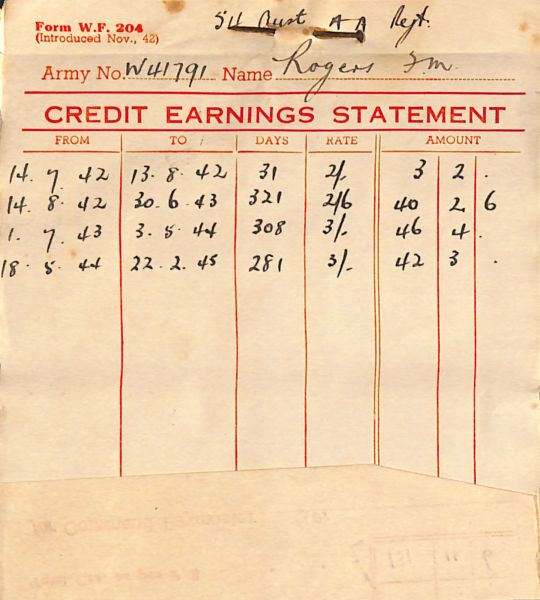 Form W.F. 204
(Introduced Nov., 42)
54 Aust AA Regt.
Army No. W41791 Name Rogers J.M.
CREDIT EARNINGS STATEMENT
FROM TO DAYS RATE AMOUNT
14. 7 42 13. 8. 42 31 2/- 3 2 .
14. 8. 42 30. 6. 43 321 2/6 40 2 6
1. 7. 43 3. 5. 44 308 3/- 46 4 .
18. 5. 44 22. 2. 45 281 3/- 42 3 .